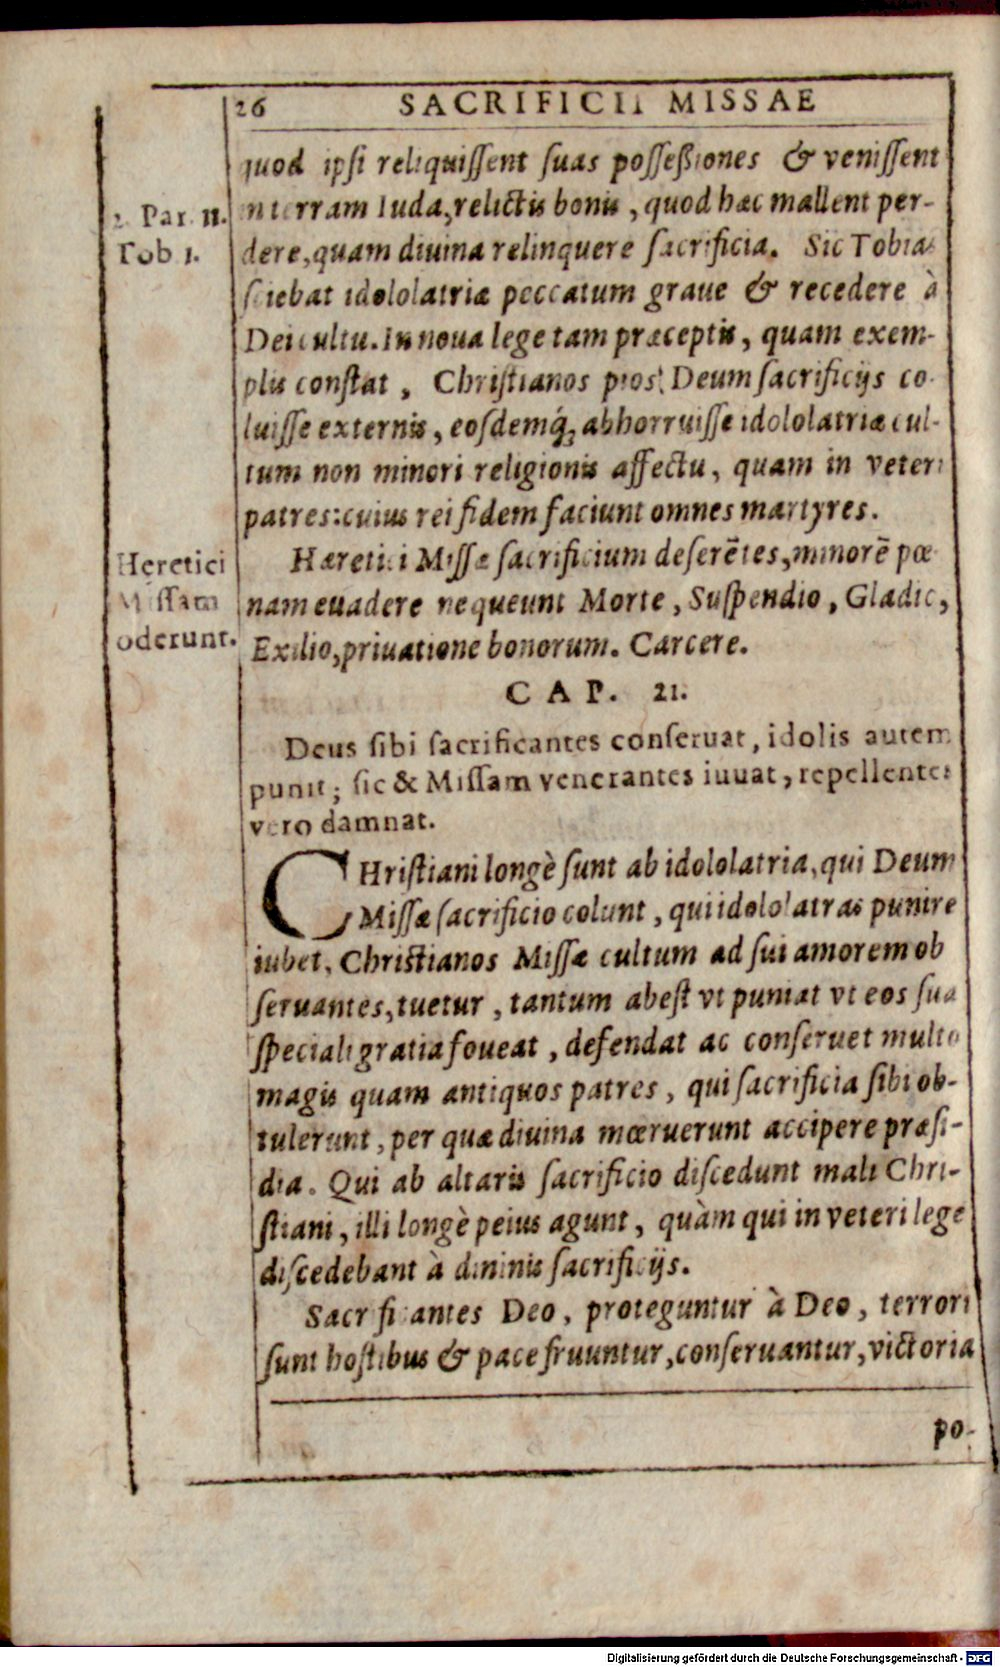 26 SACRIFICII MISSAE
quod ipsi reliquissent suas possessiones & venissent
in terram Iuda, relictis bonis, quod hæc mallent per-
2. Par. 11.
dere, quam diuina relinquere sacrificia. Sic Tobias
Tob 1.
sciebat idololatriæ peccatum graue & recedere à
Dei cultu. In noua lege tam præceptis, quam exem-
plis constat, Christianos prost Deum sacrificijs co-
luisse externis, eosdemq́; abhorruisse idololatriæ cul-
tum non minori religionis affectu, quam in veteri
patres: cuius rei fidem faciunt omnes martyres.
Hæretici Missæ sacrificium deserẽtes, minorẽ pœ-
Heretici
Missam
oderunt.
nam euadere nequeunt Morte, Suspendio, Gladio,
Exilio, priuatione bonorum. Carcere.
CAP. 21.
Deus sibi sacrificantes conseruat, idolis autem
punit; sic & Missam venerantes iuuat, repellentes
vero damnat.
CHristiani longè sunt ab idololatria, qui Deum
Missæ sacrificio colunt, qui idololatras punire
iubet, Christianos Missæ cultum ad sui amorem ob
seruantes, tuetur, tantum abest vt puniat vt eos sua
speciali gratia foueat, defendat ac conseruet multo
magis quam antiquos patres, qui sacrificia sibi ob-
tulerunt, per quæ diuina mœruerunt accipere præsi-
dia. Qui ab altaris sacrificio discedunt mali Chri-
stiani, illi longè peius agunt, quàm qui in veteri lege
discedebant à diuinis sacrificijs.
Sacrificantes Deo, proteguntur à Deo, terrori
sunt hostibus & pace fruuntur, conseruantur, victoria
po-
Digitalisierung gefördert durch die Deutsche Forschungsgemeinschaft - DFG